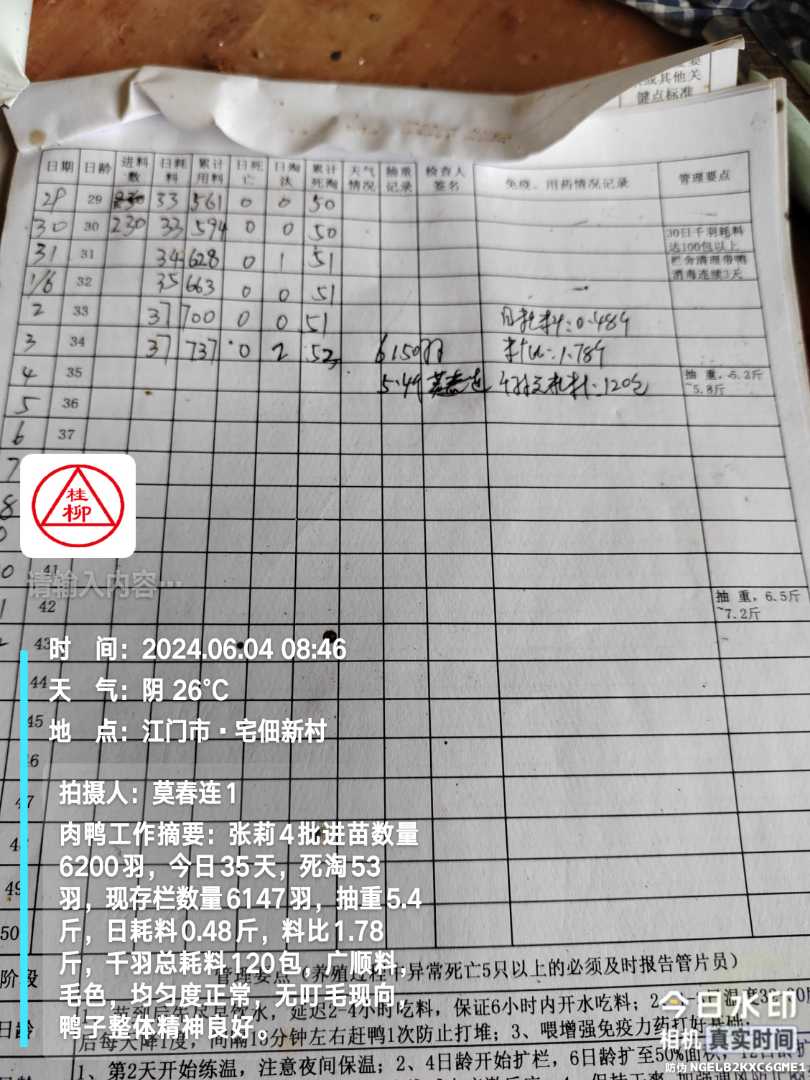 或其他关
键点标准
日期 日龄 进料数 日耗料 累计用料 日死亡 日淘汰 累计死淘 天气情况 抽重记录 检查人签名 免疫、用药情况记录 管理要点
29 29 33 561 0 0 50
30 30 230 33 594 0 0 50 30日千羽耗料达100包以上
31 31 34 628 0 1 51 栏舍清理带鸭消毒连续3天
1/6 32 35 663 0 0 51
2 33 37 700 0 0 51 日耗料:0.48斤
3 34 37 737 0 2 53 6150羽 料比:1.78斤
4 35 5.4斤 莫春连 千羽总耗料:120包 抽重,5.2斤~5.8斤
5 36
6 37
7
8
41
42 抽重,6.5斤~7.2斤
43
44
45
46
47
48
49
50
桂柳
请输入内容…
时 间：2024.06.04 08:46
天 气：阴 26℃
地 点：江门市·宅佃新村
拍摄人：莫春连1
肉鸭工作摘要：张莉4批进苗数量
6200羽，今日35天，死淘53
羽，现存栏数量6147羽，抽重5.4
斤，日耗料0.48斤，料比1.78
斤，千羽总耗料120包，广顺料，
毛色，均匀度正常，无叮毛现向，
鸭子整体精神良好。
阶段 管理要点（养殖过程中异常死亡5只以上的必须及时报告管片员）
延迟2-4小时吃料，保证6小时内开水吃料；2、
日龄 后每天降1度，间隔15分钟左右赶鸭1次防止打堆；3、喂增强免疫力药打好基础；
1、第2天开始练温，注意夜间保温；2、4日龄开始扩栏，6日龄扩至50%面积，12日龄
今日水印
相机 真实时间
防伪 NGELB2KXC6GME1